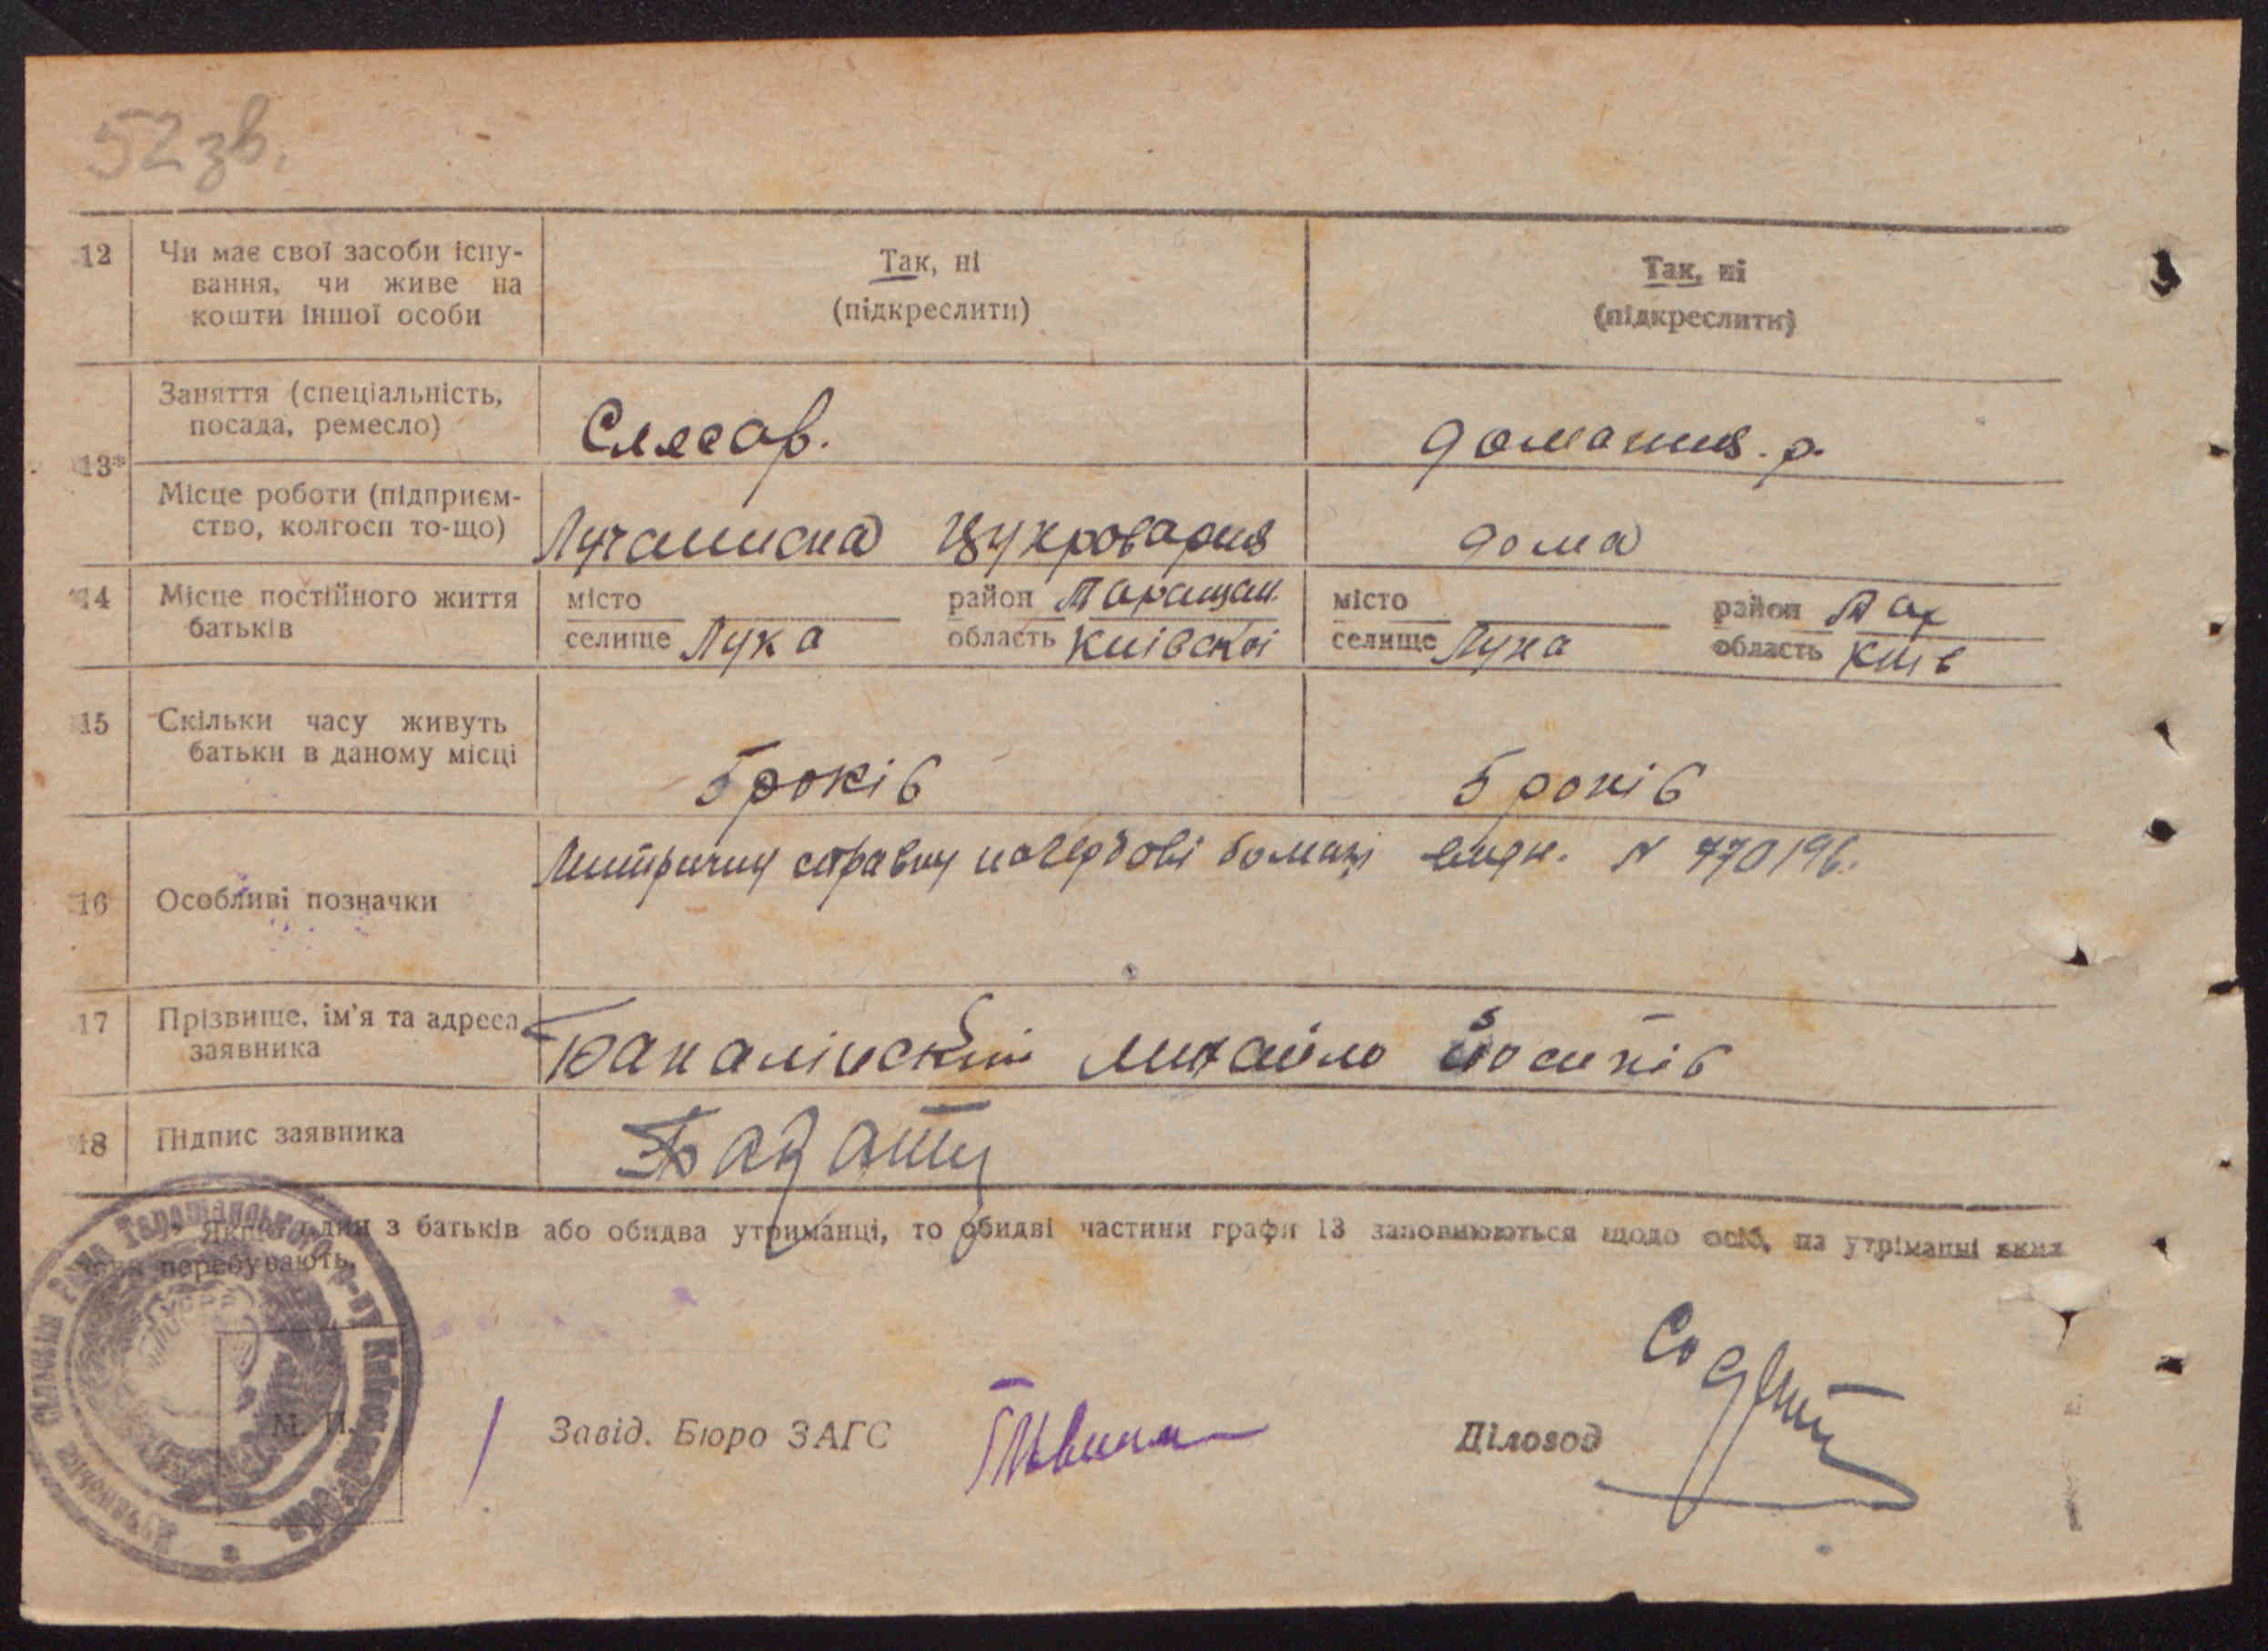 52 зв.
12 Чи має свої засоби існу-
вання, чи живе на
кошти іншої особи
Так, ні
(підкреслити)
Так, ні
(підкреслити)
13*
Заняття (спеціальність,
посада, ремесло)
Слюсар.
домашня. р.
Місце роботи (підприєм-
ство, колгосп то-що)
Лучаниска Цукроварня
дома
14 Місце постійного життя
батьків
місто
селище Лука
район Таращан.
область Київскої
місто
селище Лука
район Тар
область Київ
15 Скільки часу живуть
батьки в даному місці
5 років
5 років
16 Особливі позначки
справку N 770196.
17 Прізвище, ім'я та адреса
заявника
Михайло Йосипів
18 Підпис заявника
* Якщо один з батьків або обидва утриманці, то обидві частини графи 13 заповнюються щодо осіб, на утріманні яких
вони перебувають.
М. П.
Завід. Бюро ЗАГС
Діловод